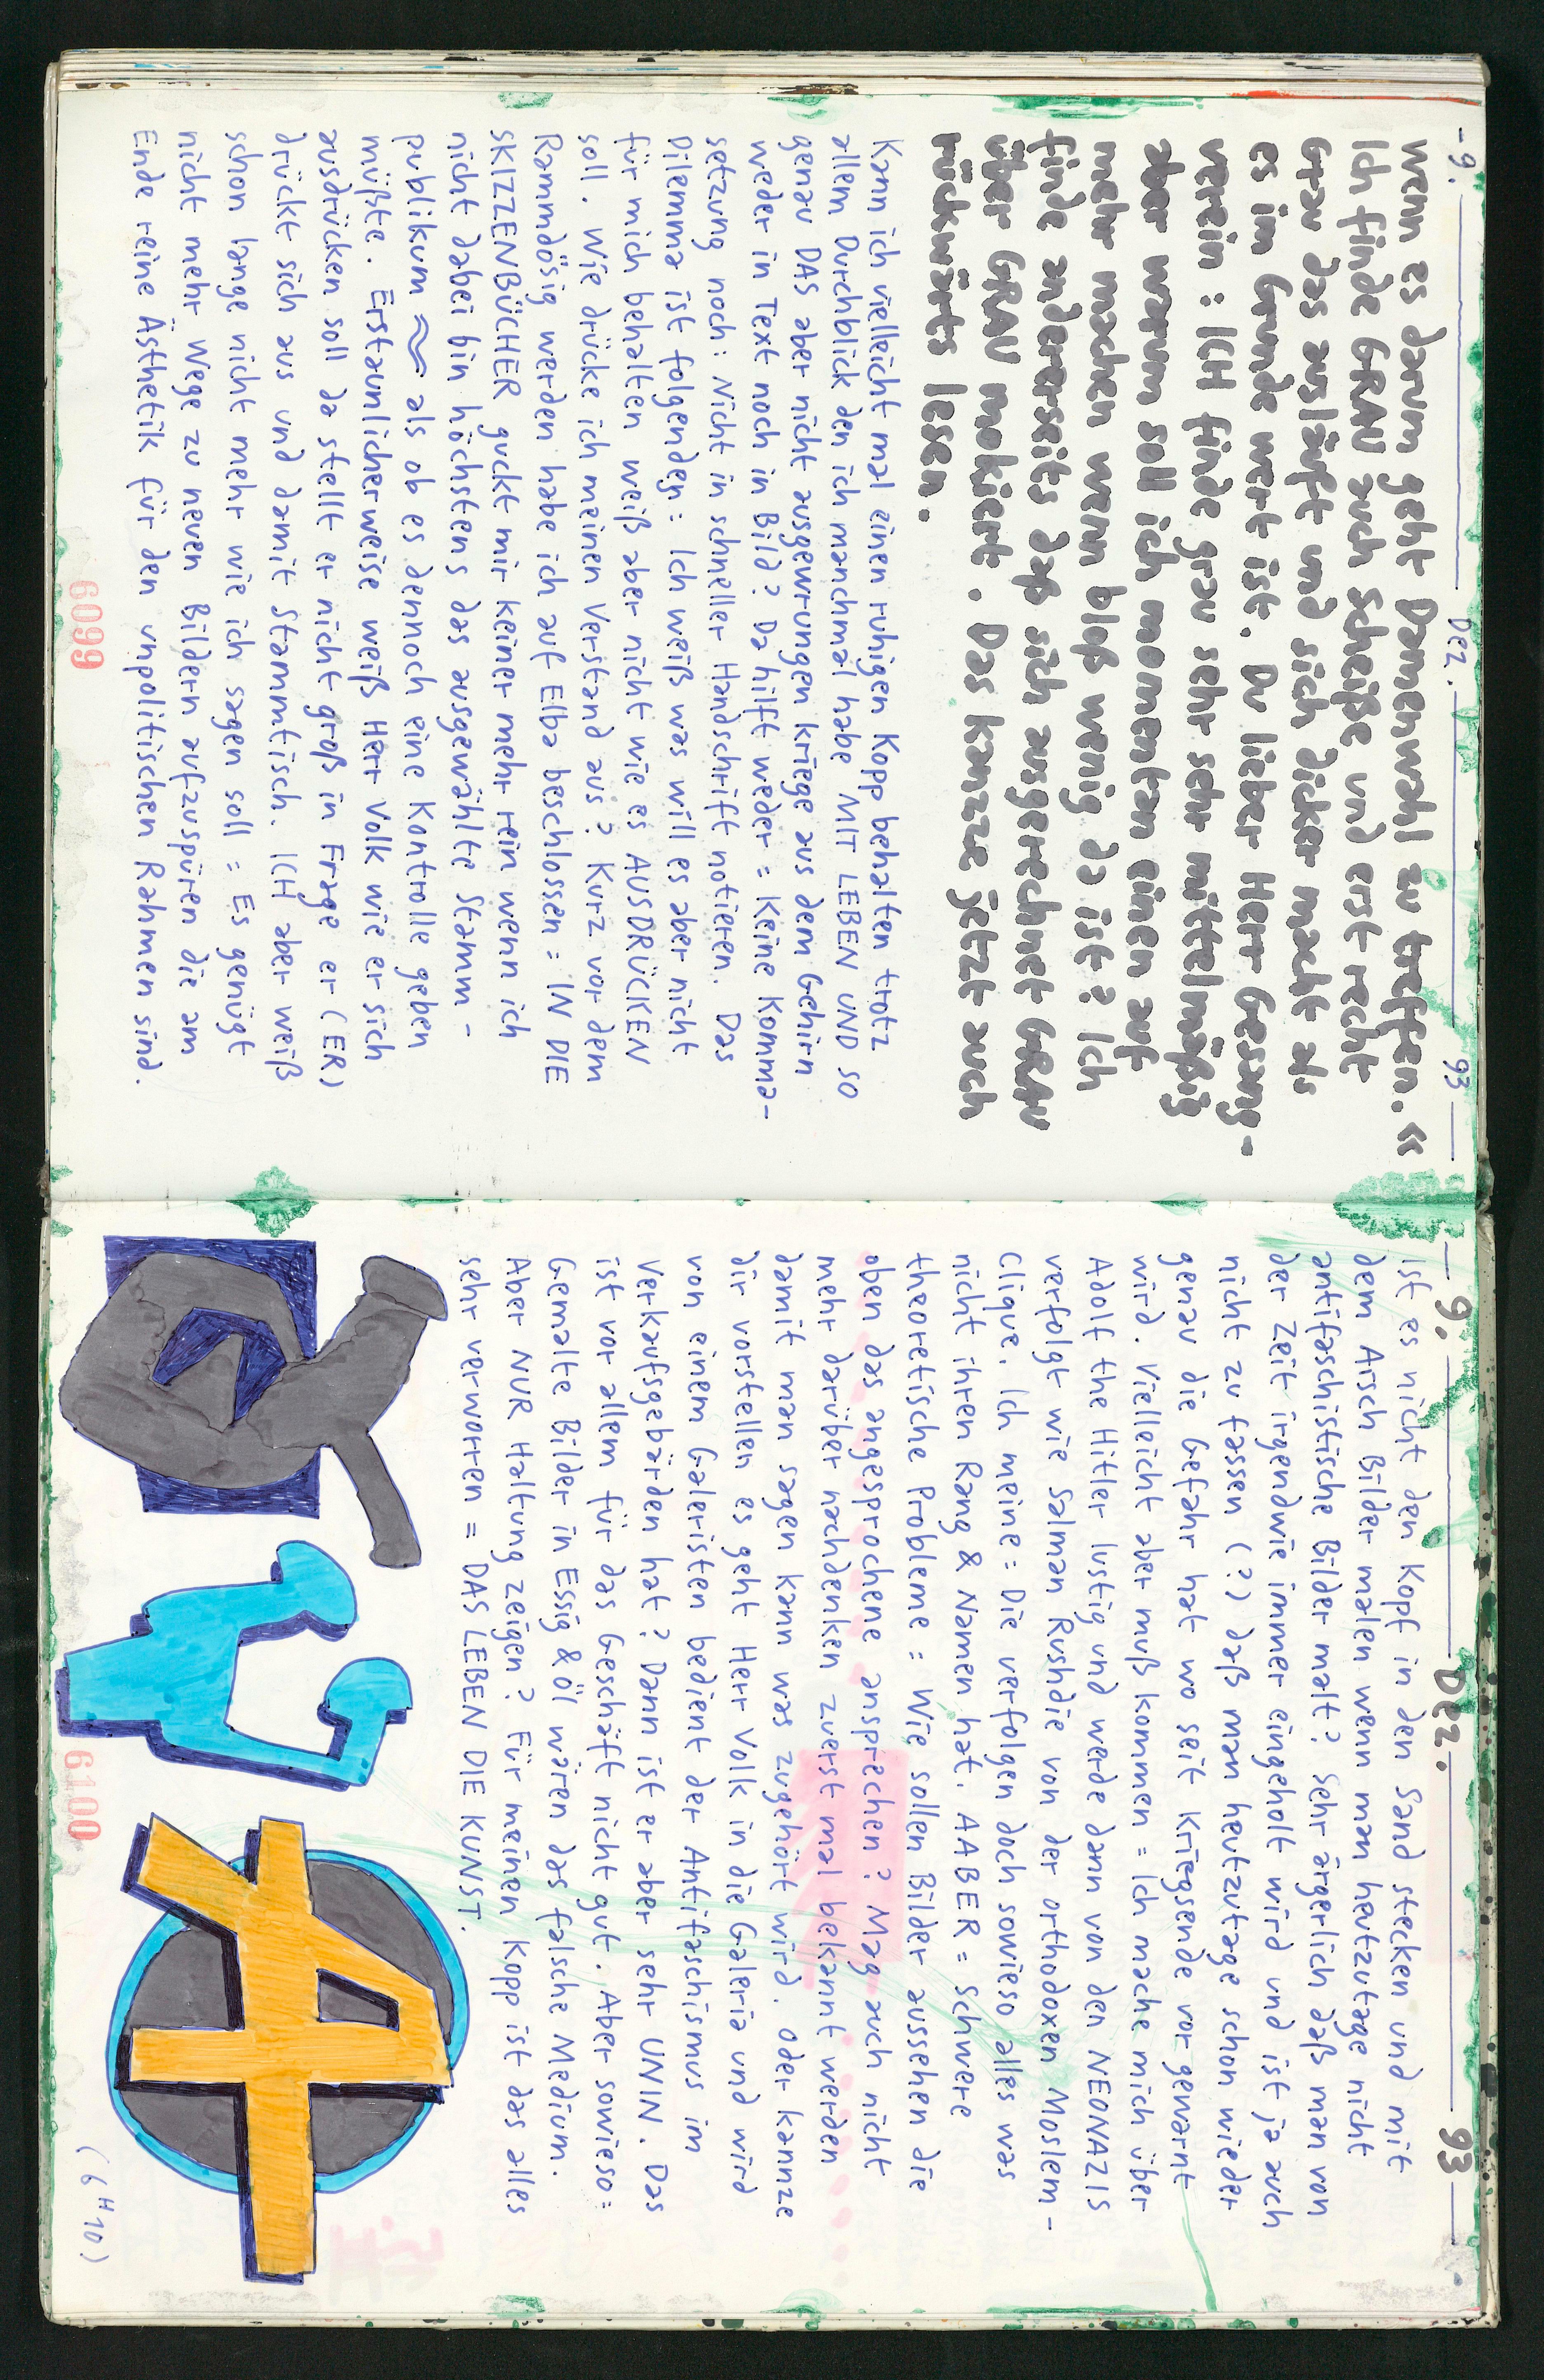 - 9. Dez. 93
wenn es darum geht Damenwahl zu treffen.«
Ich finde GRAU auch Scheiße und erst recht
Grau das ausläuft und sich dicker macht als
es im Grunde wert ist. Du lieber Herr Gesang-
verein : ICH finde grau sehr sehr mittelmäßig
aber warum soll ich momentan einen auf
mehr machen wenn bloß wenig da ist? Ich
finde andererseits daß sich ausgerechnet GRAU
über GRAU mokiert. Das kannze jetzt auch
rückwärts lesen.
Kann ich vielleicht mal einen ruhigen Kopp behalten trotz
allem Durchblick den ich manchmal habe MIT LEBEN UND so
genau DAS aber nicht ausgewrungen kriege aus dem Gehirn
weder in Text noch in Bild? Da hilft weder = Keine Komma-
setzung noch: Nicht in schneller Handschrift notieren. Das
Dilemma ist folgendes = Ich weiß was will es aber nicht
für mich behalten weiß aber nicht wie es AUSDRÜCKEN
soll. Wie drücke ich meinen Verstand aus? Kurz vor dem
Rammdösig werden habe ich auf Elba beschlossen = IN DIE
SKIZZENBÜCHER guckt mir keiner mehr rein wenn ich
nicht dabei bin höchstens das ausgewählte Stamm-
publikum als ob es dennoch eine Kontrolle geben
müßte. Erstaunlicherweise weiß Herr Volk wie er sich
ausdrücken soll da stellt er nicht groß in Frage er (ER)
drückt sich aus und damit Stammtisch. ICH aber weiß
schon lange nicht mehr wie ich sagen soll = Es genügt
nicht mehr Wege zu neuen Bildern aufzuspüren die am
Ende reine Ästhetik für den unpolitischen Rahmen sind.
6099
- 9. Dez. 93 -
ist es nicht den Kopf in den Sand stecken und mit
dem Arsch Bilder malen wenn man heutzutage nicht
antifaschistische Bilder malt? Sehr ärgerlich daß man von
der Zeit irgendwie immer eingeholt wird und ist ja auch
nicht zu fassen (?) daß man heutzutage schon wieder
genau die Gefahr hat wo seit Kriegsende vor gewarnt
wird. Vielleicht aber muß kommen = Ich mache mich über
Adolf the Hitler lustig und werde dann von den NEONAZIS
verfolgt wie Salman Rushdie von der orthodoxen Moslem-
Clique. Ich meine = Die verfolgen doch sowieso alles was
nicht ihren Rang & Namen hat. AABER = Schwere
theoretische Probleme = Wie sollen Bilder aussehen die
oben das angesprochene ansprechen? Mag auch nicht
mehr darüber nachdenken zuerst mal bekannt werden
damit man sagen kann was zugehört wird. Oder kannze
dir vorstellen es geht Herr Volk in die Galeria und wird
von einem Galeristen bedient der Antifaschismus im
Verkaufsgebärden hat? Dann ist er aber sehr UNIN. Das
ist vor allem für das Geschäft nicht gut. Aber sowieso =
Gemalte Bilder in Essig & Öl wären das falsche Medium.
Aber NUR Haltung zeigen? Für meinen Kopp ist das alles
sehr verworren = DAS LEBEN DIE KUNST.
6100
(6H10)